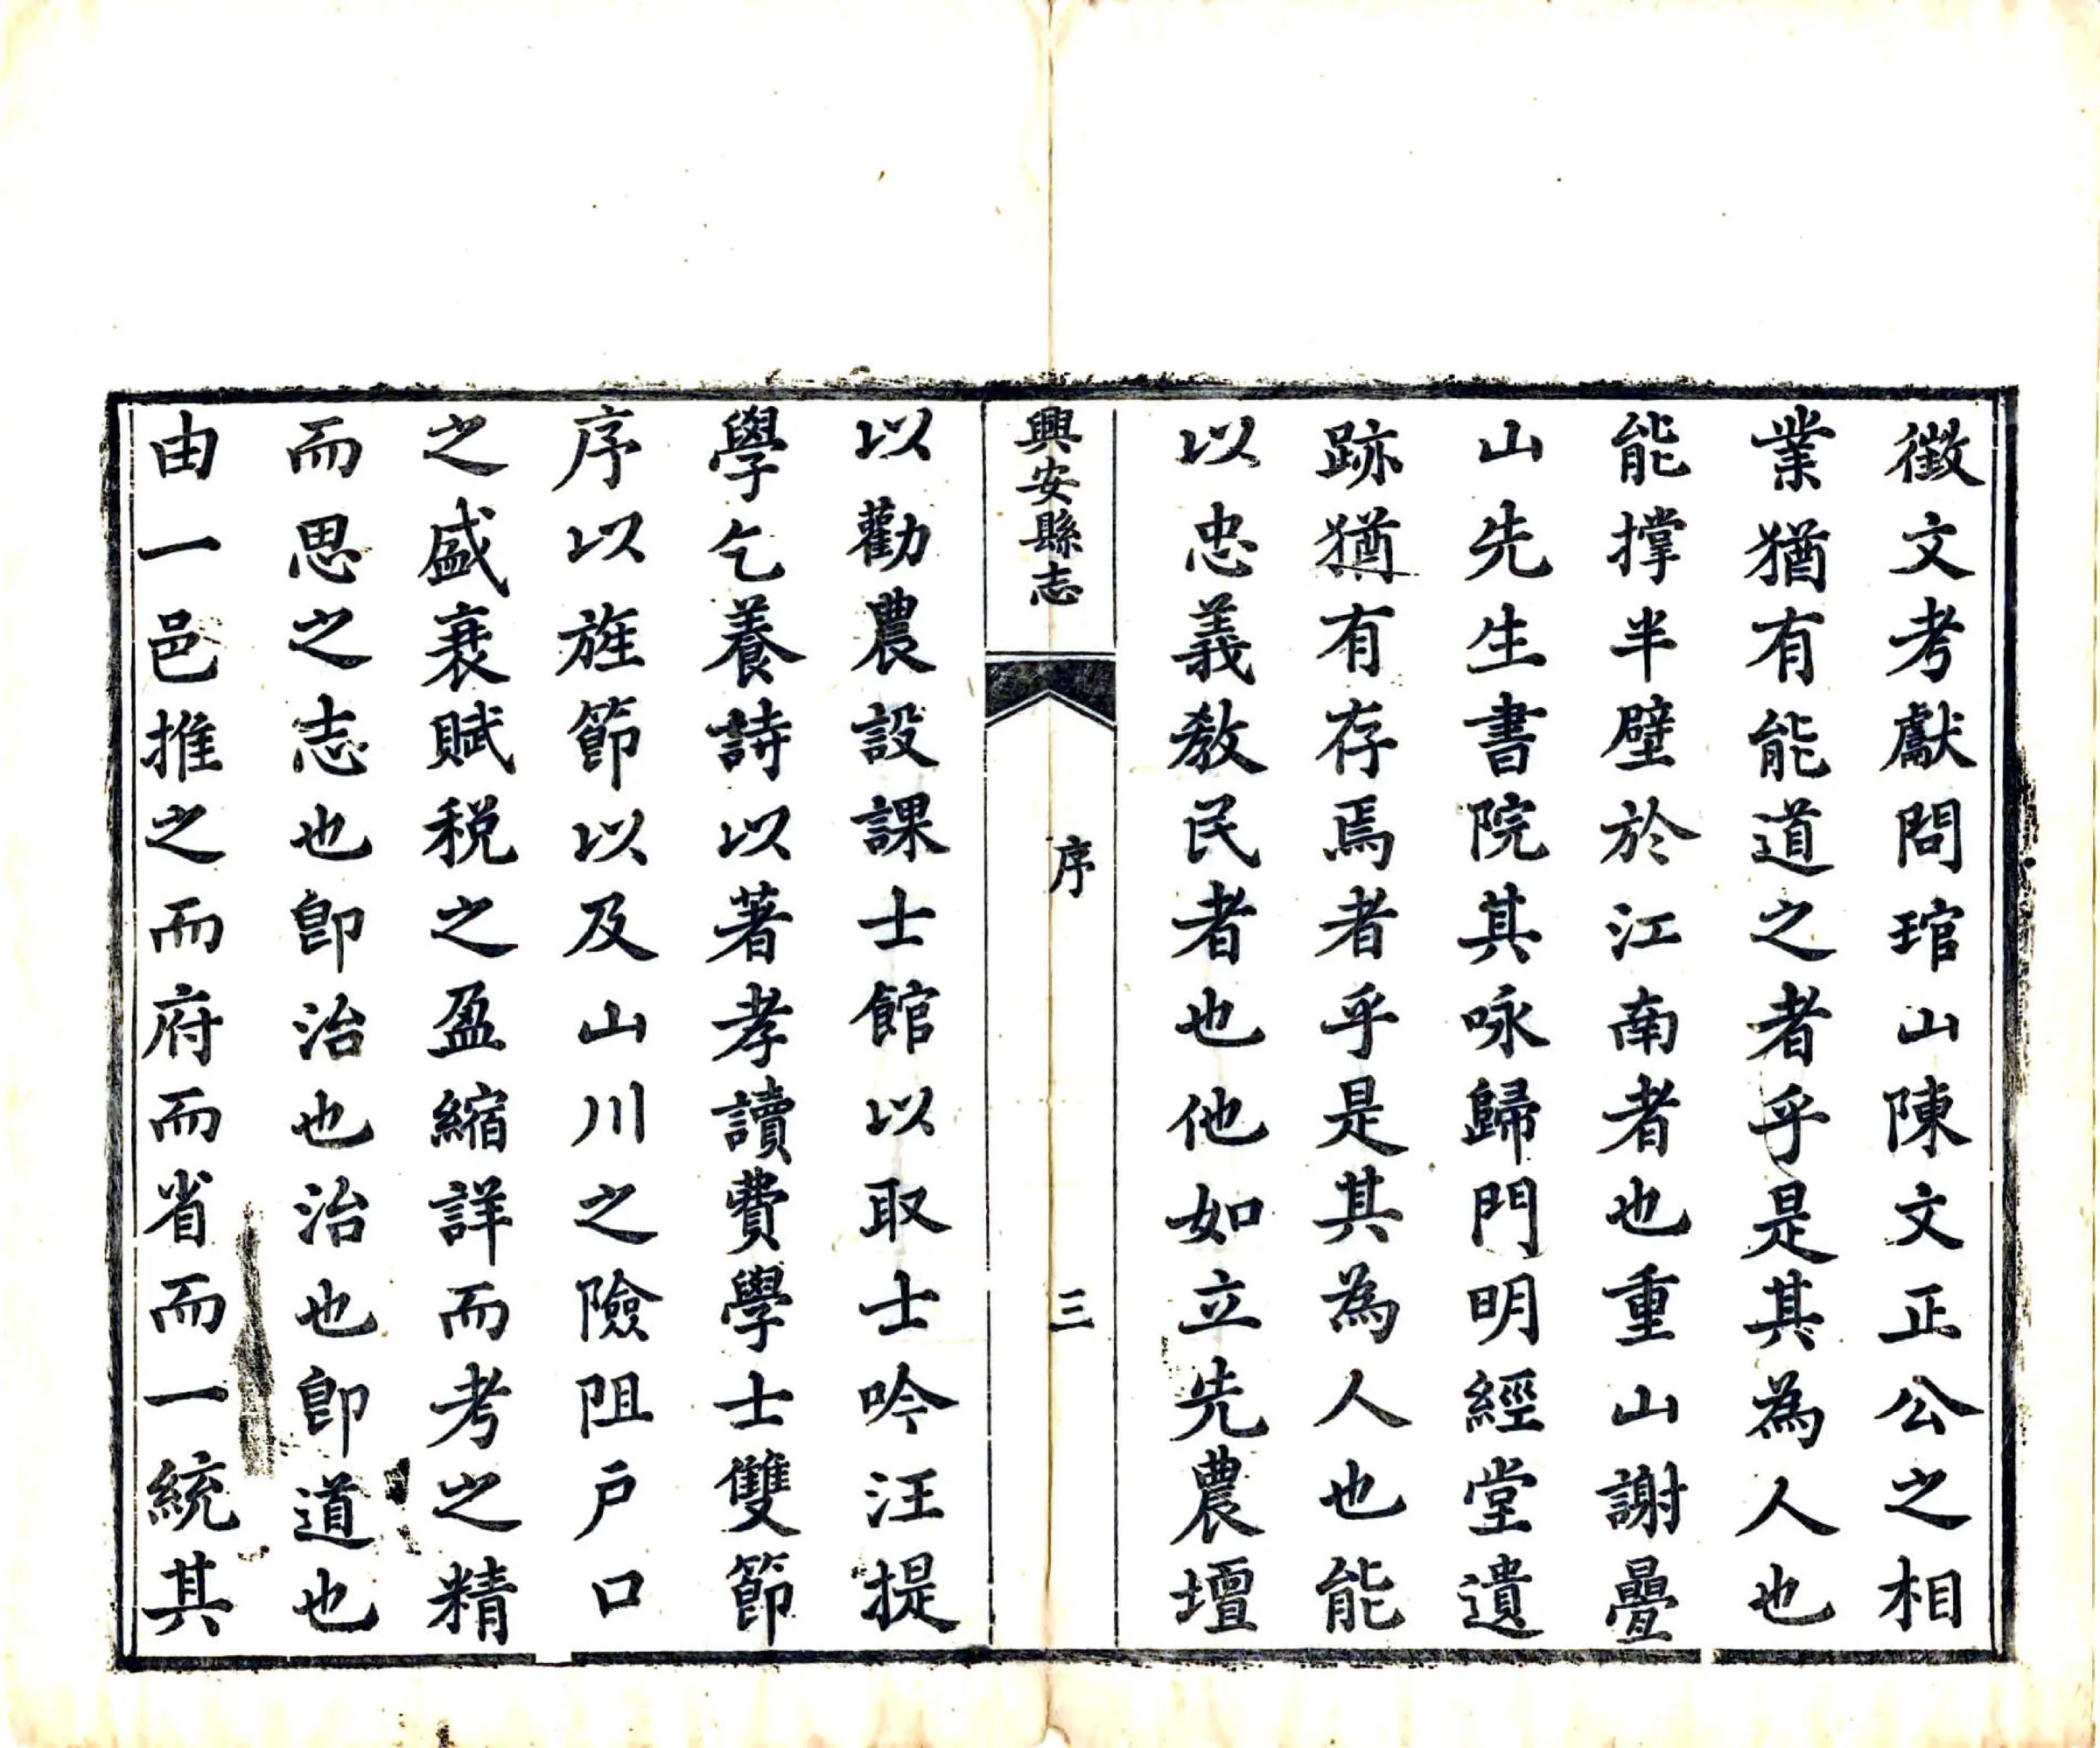 徵文考獻問琯山陳文正公之相
業猶有能道之者乎是其為人也
能撐半壁於江南者也重山謝疊
山先生書院其咏歸門明經堂遺
跡猶有存焉者乎是其為人也能
以忠義教民者也他如立先農壇
興安縣志
序
三
以勸農設課士館以取士吟汪提
學乞養詩以著孝讀費學士雙節
序以旌節以及山川之險阻戶口
之盛衰賦税之盈縮詳而考之精
而思之志也卽治也治也卽道也
由一邑推之而府而省而一統其